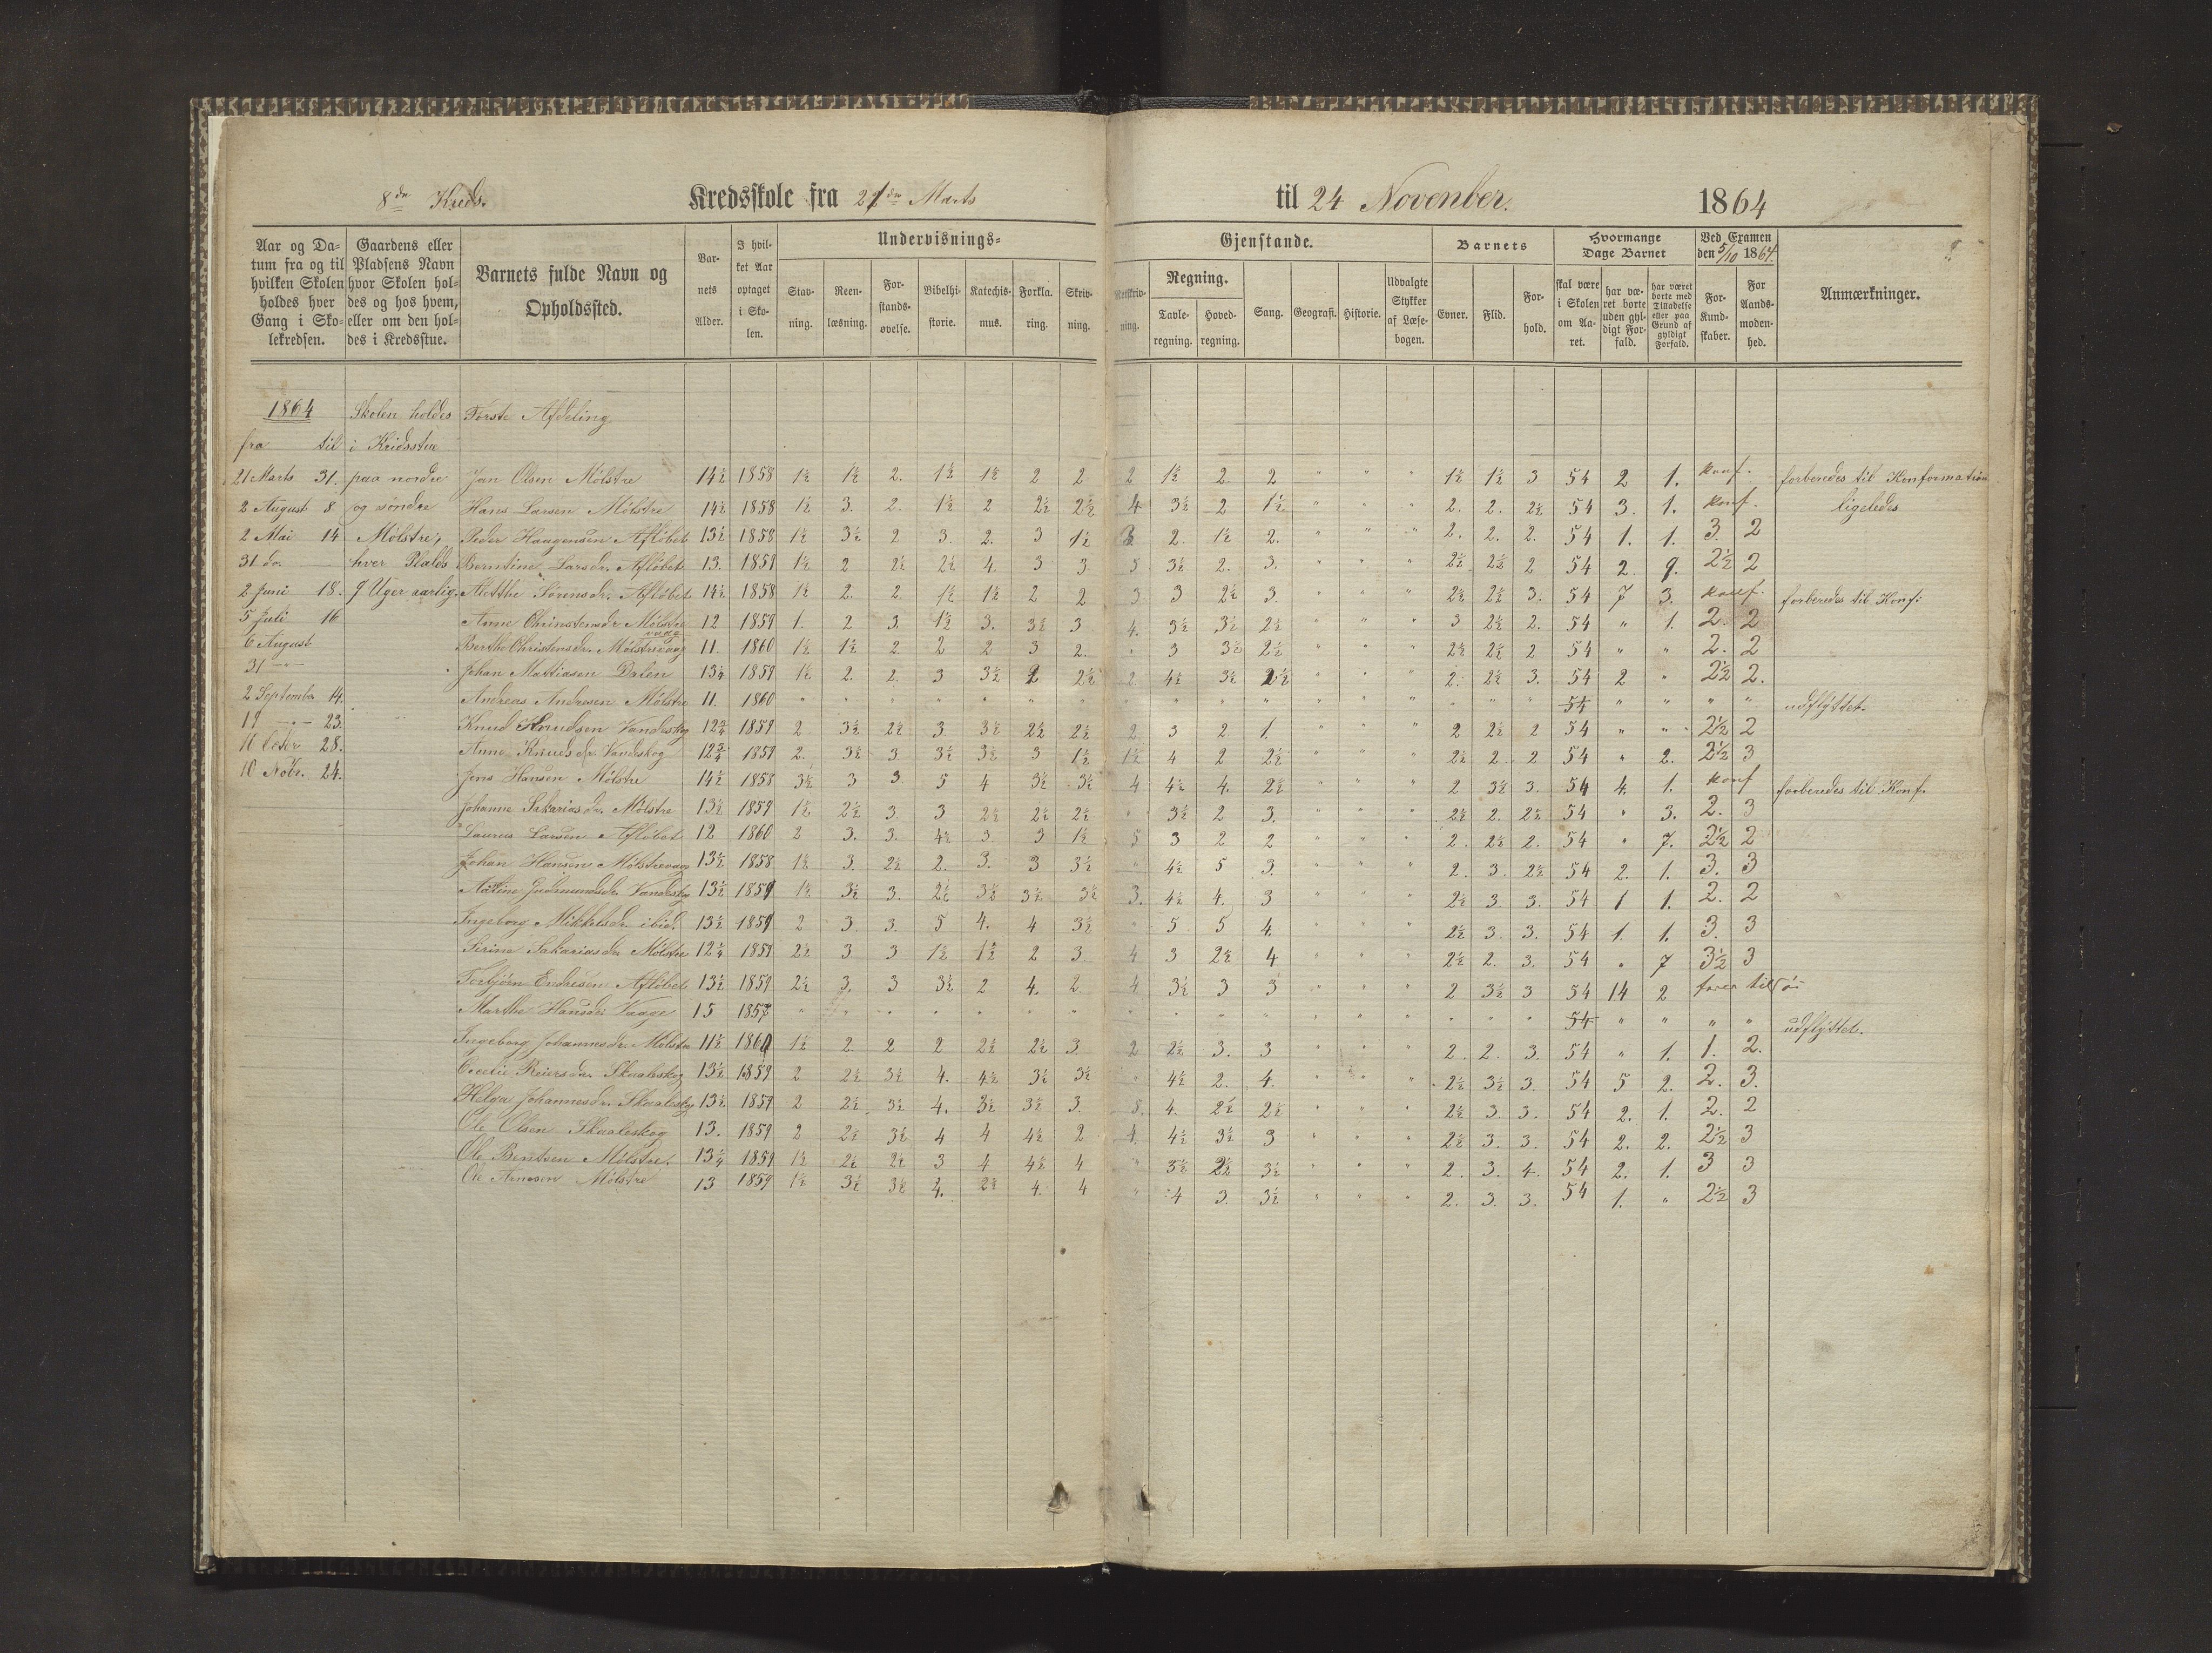 8de Kreds. Kredsskole fra 21de Marts til 24 November. 1864
Aar og Datum fra og til hvilken Skolen holdes hver Gang i Skolekredsen.
Gaardens eller Pladsens Navn hvor Skolen holdes og hos hvem, eller om den holdes i Kredsstue.
Barnets fulde Navn og Opholdssted.
Barnets Alder.
I hvilket Aar optaget i Skolen.
Undervisnings=
Stavning. Reenlæsning. Forstandsøvelse. Bibelhistorie. Katechismus. Forklaring. Skrivning.
Gjenstande.
Retskrivning. Regning. Tavleregning. Hovedregning. Sang. Geografi. Historie. Udvalgte Stykker af Læsebogen.
Barnets
Evner. Flid. Forhold.
Hvormange Dage Barnet
skal være i Skolen om Aaret. har været borte uden gyldigt Forfald. har været borte med Tilladelse eller paa Grund af gyldigt Forfald.
Ved Examen den 5/10 1864.
For Kundskaber. For Aandsmodenhed.
Anmærkninger.
1864 Skolen holdes Første Afdeling
fra til i Kredsstue
21 Marts 31. paa nordre Jan Olsen Mølstre 14½ 1858 1½ 1½ 2. 1½ 1½ 2 2 2 1½ 2. 2 " " " 1½ 1½ 3 54 2 1. konf. forberedes til Konformation
2 August 8 og söndre Hans Larsen Mölstre 14½ 1858 1½ 3. 2. 1½ 2 2½ 2½ 4 3½ 2 1½ " " " 2. 2. 2½ 54 3. 1. konf. ligeledes
2 Mai 14 Mølstre, Peder Haagensen Afløbet 13½ 1858 1½ 3½ 2 3. 2. 3 1½ 3. 2. 1½ 2. " " " 2. 2. 2. 54 1. 1. 3. 2
31 do. hver Plads Berntine Larsdr. Afløbet 13. 1859 1½ 2 2½ 2½ 4. 3 3 5 3½ 2. 3. " " " 2½ 2½ 2 54 2. 9. 2½ 2
2 Juni 18. 9 Uger aarlig. Metthe Sörensdr. Afløbet 14½ 1858 1½ 2. 2. 1½ 1½ 2 2 3 3 2½ 3. " " " 2½ 2½ 3. 54 7 3. konf. forberedes til Konf:
5 Juli 16 Anne Christensdr Mölstre 12 1859 1. 2 3. 1½ 3. 3½ 3 4. 3½ 3½ 2½ " " " 3 2½ 2. 54 " 1. 2. 2
6 August Berthe Christensdr. Mølstrevaag 11. 1860 1½ 1½ 2 2 2 3 2. " 3 3½ 2½ " " " 2½ 2½ 2 54 " " 2. 2
31 -"- Johan Mattiasen Dalen 13¼ 1859 1½ 2. 2. 3 3½ 2 2½ 2 4½ 3½ 2½ " " " 2. 2½ 3. 54 2 " 2½ 2.
2 September 14. Andreas Andresen Mölstre 11. 1860 " " " " " " " " " " " " " " " " " 54 " " " " udflÿttet.
19 -"- 23. Knud Knudsen Vandeskog 12¾ 1859 2 3½ 2½ 3 3½ 2½ 2½ 2 3 2. 1. " " " 2 2½ 2 54 " " 2½ 2
28. Anne Knudsdr. Vandeskog 12¾ 1859 2. 3½ 3. 3½ 3½ 3 1½ 1½ 4 2 2½ " " " 2½ 2. 2 54 " 2. 2½ 3
10 Nobr. 24. Jens Hansen Mölstre 14½ 1858 3½ 3 3 5 4 3½ 3½ 4 4½ 4. 2½ " " " 2 3½ 3. 54 4. 1. konf forberedes til Konf.
Johanne Sakariasdr. Mölstre 13½ 1859 1½ 2½ 3. 3 2½ 2½ 2½ " 3½ 2 3. " " " 2½ 2. 2½ 54 " 3. 2. 3
Laurus Larsen Afløbet 12 1860 2 3. 3. 4½ 3. 3 1½ 5 3 2 2 " " " 2. 2½ 2. 54 " 7. 2½ 2
Johan Hansen Mölstrevaag 13½ 1858 1½ 3. 2½ 2. 3. 3 3½ " 4½ 5 3. " " " 2. 3. 2½ 54 2. 1. 3. 3
Gudmundsdr. Vandeskog 13½ 1859 1½ 3½ 3. 2½ 3½ 3½ 3½ 3. 4½ 4. 3 " " " 2½ 3. 3. 54 1 1. 2. 2
Ingeborg Mikkelsdr. ibid. 13½ 1859 2 3. 3. 5 4. 4 3½ " 5 5 4. " " " 2½ 3. 3. 54 1. 1. 3. 3
Serine Sakariasdr. Mölstre 12¼ 1859 2½ 3 3 1½ 1½ 2 3. 4 3 2½ 4 " " " 2½ 2. 3. 54 " 7 3½ 3
Torbjörn Endresen Afløbet 13½ 1859 2½ 3. 3 3½ 2 4. 2 4 3½ 3 3 " " " 2 3½ 3 54 14 2
Marthe Hansdr Vaage 15 1857 " " " " " " " " " " " " " " " " " 54 " " " " udflÿttet.
Ingeborg Johannesdr. Mølstre 11½ 1860 1½ 2. 2 2 2½ 2½ 3. 2 2½ 3. 3 " " " 2. 2. 3. 54 " 1. 1. 2.
Reiersdr. Skaaleskog 13½ 1859 2 2½ 3½ 4. 4½ 3½ 3½ " 4½ 2. 4. " " " 2½ 3½ 3. 54 5 2. 2. 3.
Helga Johannesdr. Skaaleskog 13½ 1859 2 2½ 3½ 4. 3½ 3½ 3. 4. 2½ 2½ " " " 2½ 3. 3. 54 2. 1. 2. 2
Ole Olsen Skaaleskog 13. 1859 2 2½ 3½ 4 4 4½ 2 4. 4½ 3½ 3 " " " 2½ 3. 3. 54 2. 2. 2½ 3
Ole Bentsen Mölstre. 13¼ 1859 1½ 2½ 2½ 3 4 4½ 4 " 3½ 2½ 3½ " " " 2. 3. 4. 54 2. 1. 3 3
Ole Arnesen Mölstre 13 1859 1½ 3½ 3½ 4. 2½ 4. 4 " 4 3. 3½ " " " 2. 3. 3. 54 1. " 2½ 3